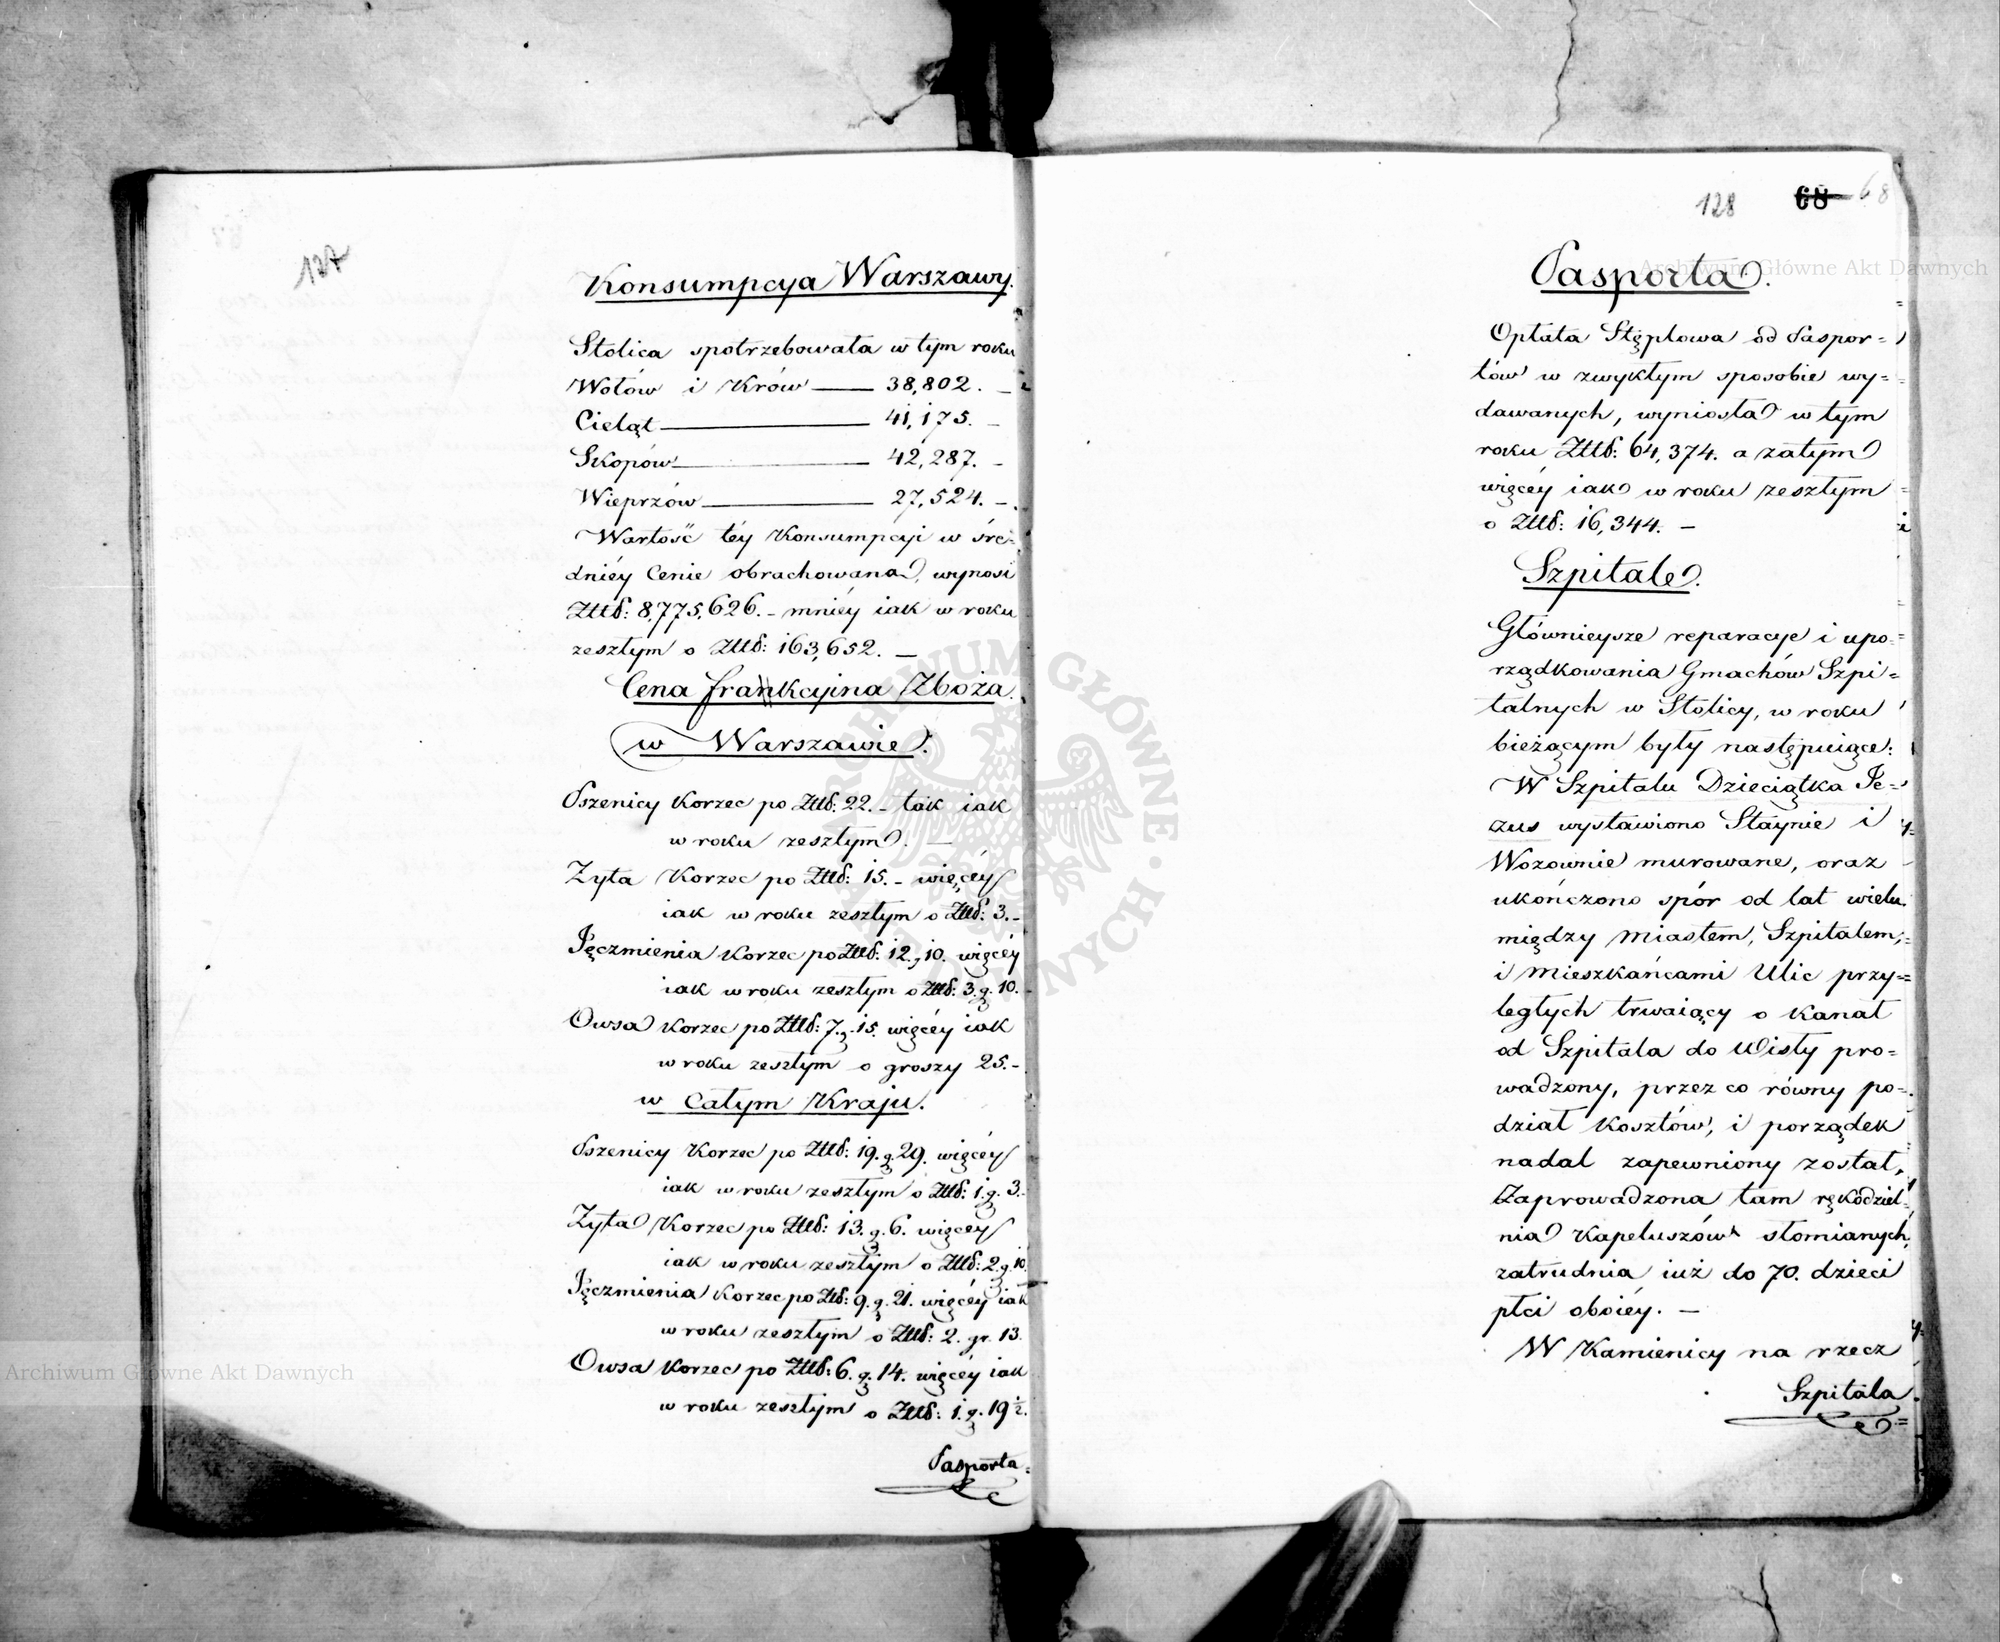 127
Konsumpcya Warszawy.
Stolica spotrzebowała w tym roku
Wołów i Krów — 38,802. —
Cieląt — 41,175. —
Skopów — 42,287. —
Wieprzów — 27,524. —
Wartość téy Konsumpcyi w śre-
dniéy Cenie obrachowana, wynosi
Złłd: 8,775,626. – mniéy iak w roku
zeszłym o Złłd: 163,652. —
Cena frankcyjna Zboża
w Warszawie.
Pszenicy Korzec po Złłd: 22. – tak iak
w roku zeszłym. —
Żyta Korzec po Złłd: 15. – więcéy
iak w roku zeszłym o Złłd: 3. –
Jęczmienia Korzec po Złłd: 12. g 10. więcéy
iak w roku zeszłym o Złłd: 3. g. 10.
Owsa Korzec po Złłd: 7. g. 15. więcéy iak
w roku zeszłym o groszy 25. –
w Całym Kraju.
Pszenicy Korzec po Złłd: 19. g. 29. więcéy
iak w roku zeszłym o Złłd: 1. g. 3. –
Żyta Korzec po Złłd: 13. g. 6. więcéy
iak w roku zeszłym o Złłd: 2. g. 10.
Jęczmienia Korzec po Złłd: 9. g. 21. więcéy iak
w roku zeszłym o Złłd: 2. gr. 13.
Owsa Korzec po Złłd: 6. g. 14. więcéy iak
w roku zeszłym o Złłd: 1. g. 19 1/2.
Pasporta
128 68 68
Pasporta.
Opłata Stęplowa od Paspor=
tów w zwykłym sposobie wy=
dawanych, wyniosła w tym
roku Złłd: 64,374. a zatym
więcéy iak w roku zeszłym
o Złłd: 16,344. —
Szpitale.
Główniejsze reparacye i upo-
rządkowania Gmachów Szpi=
talnych w Stolicy, w roku
bieżącym były następuiące:
W Szpitalu Dzieciątka Je=
zus wystawiono Staynie i
Wozownie murowane, oraz
ukończono spór od lat wielu
między Miastem, Szpitalem,
i Mieszkańcami Ulic przy=
ległych trwaiący o Kanał
od Szpitala do Wisły pro=
wadzony, przez co równy po=
dział Kosztów, i porządek
nadal zapewniony został,
Zaprowadzona tam rękodziel-
nia Kapeluszów słomianych,
zatrudnia iuż do 70. dzieci
płci oboiéy. —
W Kamienicy na rzecz
Szpitala
Archiwum Główne Akt Dawnych
Archiwum Główne Akt Dawnych
ARCHIWUM GŁÓWNE AKT DAWNYCH